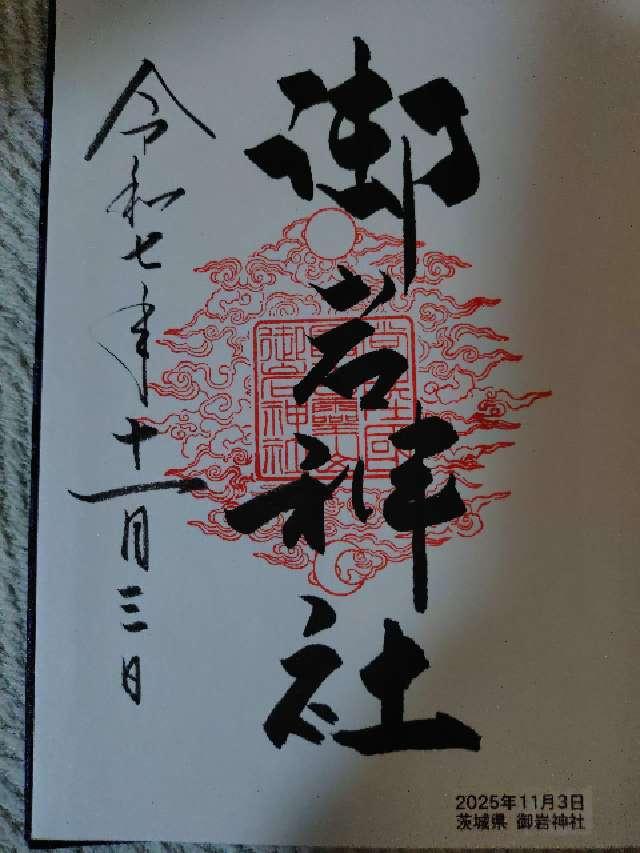 御岩神社
令和七年十一月三日
常陸國
御岩神社
2025年11月3日
茨城県 御岩神社